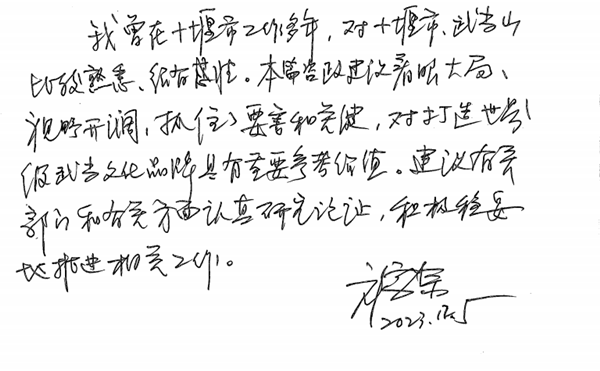 我曾在十堰市工作多年，对十堰市、武当山
比较熟悉、很有感性。本篇咨政建议着眼大局、
视野开阔，抓住了要害和关键，对打造世界
级武当文化品牌具有重要参考价值。建议有关
部门和有关方面认真研究论证，积极稳妥
地推进相关工作。
2023.12.5